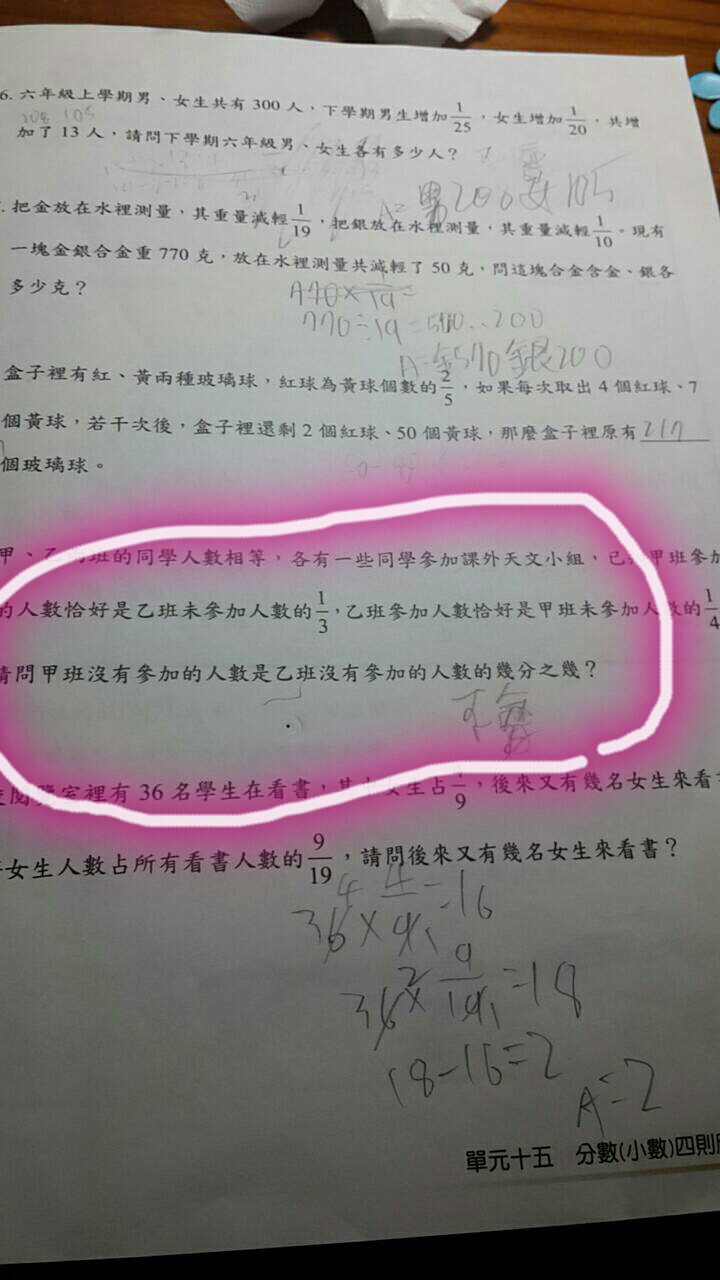 6. 六年級上學期男、女生共有 300 人，下學期男生增加1/25，女生增加1/20，共增
108 105
加了 13 人，請問下學期六年級男、女生各有多少人？
A= 男208 女105
. 把金放在水裡測量，其重量減輕1/19，把銀放在水裡測量，其重量減輕1/10。現有
一塊金銀合金重 770 克，放在水裡測量共減輕了 50 克，問這塊合金含金、銀各
多少克？
770÷19=
A=金570 銀200
盒子裡有紅、黃兩種玻璃球，紅球為黃球個數的2/5，如果每次取出 4 個紅球、7
個黃球，若干次後，盒子裡還剩 2 個紅球、50 個黃球，那麼盒子裡原有 217
個玻璃球。
甲、乙兩班的同學人數相等，各有一些同學參加課外天文小組，已知甲班參加
的人數恰好是乙班未參加人數的1/3，乙班參加人數恰好是甲班未參加人數的1/4
請問甲班沒有參加的人數是乙班沒有參加的人數的幾分之幾？
不會
閱覽室裡有 36 名學生在看書，其中女生占4/9，後來又有幾名女生來看書
女生人數占所有看書人數的9/19，請問後來又有幾名女生來看書？
=16
=18
18-16=2
A=2
單元十五 分數(小數)四則